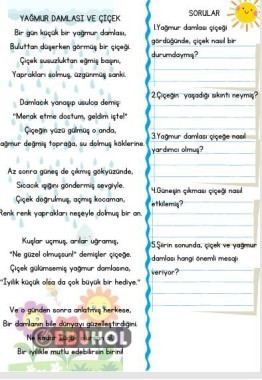 YAĞMUR DAMLASI VE ÇİÇEK
Bir gün küçük bir yağmur damlası,
Buluttan düşerken görmüş bir çiçeği.
Çiçek susuzluktan eğmiş başını,
Yaprakları solmuş, üzgünmüş sanki.
Damlacık yanaşıp usulca demiş:
"Merak etme dostum, geldim işte!"
Çiçeğin yüzü gülmüş o anda,
ağmur değmiş toprağa, su dolmuş köklerine.
Az sonra güneş de çıkmış gökyüzünde,
Sıcacık ışığını göndermiş sevgiyle.
Çiçek doğrulmuş, açmış kocaman,
Renk renk yaprakları neşeyle dolmuş bir an.
Kuşlar uçmuş, arılar uğramış,
"Ne güzel olmuşsun!" demişler çiçeğe.
Çiçek gülümsemiş yağmur damlasına,
"İyilik küçük olsa da çok büyük bir hediye."
Ve o günden sonra anlatmış herkese,
Bir damlanın bile dünyayı güzelleştirdiğini.
Ne kadar
Bir iyilikle mutlu edebilirsin birini!
EDUHOL
SORULAR
1.Yağmur damlası çiçeği
gördüğünde, çiçek nasıl bir
durumdaymış?
2.Çiçeğin yaşadığı sıkıntı neymiş?
3.Yağmur damlası çiçeğe nasıl
yardımcı olmuş?
4.Güneşin çıkması çiçeği nasıl
etkilemiş?
5.Şiirin sonunda, çiçek ve yağmur
damlası hangi önemli mesajı
veriyor?